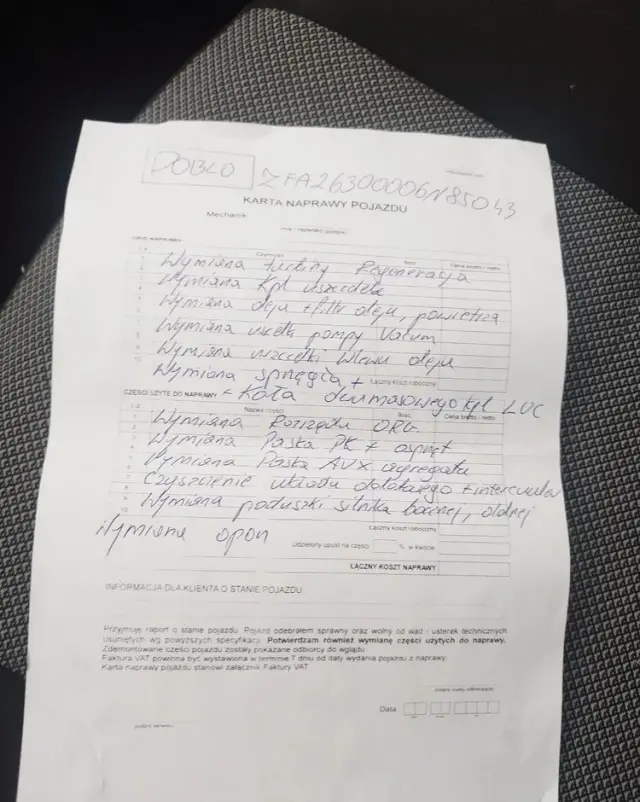 DOBLO ZFA26300006N85043
KARTA NAPRAWY POJAZDU
Mechanik
OPIS NAPRAWY
Czynność Ilość Cena brutto / netto
Wymiana Turbiny Regeneracja
Wymiana Kpl uszczelek
Wymiana oleju + filtr oleju, powietrza
Wymiana uszcelk pompy Vacum
Wymiana uszczelki wlewu oleju
Wymiana sprzęgła +
Łączny koszt robocizny
+ Koła dwumasowego kpl LUC
CZĘŚCI UŻYTE DO NAPRAWY
Nazwa części Ilość Cena brutto / netto
Wymiana Rozrządu ORG
Wymiana Paska PK + osprzęt
Wymiana Paska AVX agregatu
Czyszczenie układu dolotowego + intercooler
Wymiana poduszki silnika bocznej, dolnej
Łączny koszt robocizny
Wymiana opon
Udzielony upust na części % w kwocie
ŁĄCZNY KOSZT NAPRAWY
INFORMACJA DLA KLIENTA O STANIE POJAZDU
Przyjmuję raport o stanie pojazdu. Pojazd odebrałem sprawny oraz wolny od wad i usterek technicznych
usuniętych wg powyższych specyfikacji. Potwierdzam również wymianę części użytych do naprawy.
Zdemontowane części pojazdu zostały pokazane odbiorcy do wglądu.
Faktura VAT powinna być wystawiona w terminie 7 dni od daty wydania pojazdu z naprawy.
Karta naprawy pojazdu stanowi załącznik Faktury VAT
Data